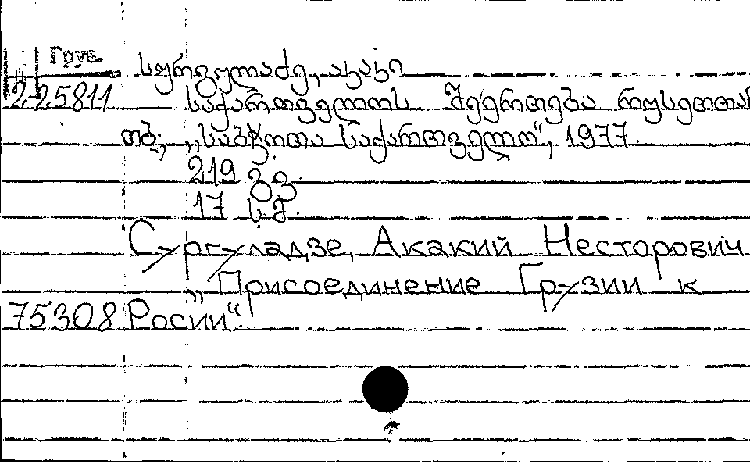 Груз.
სურგულაძე, აკაკი
225811 საქართველოს შეერთება რუსეთთან
თბ., „საბჭოთა საქართველო“, 1977.
219 გვ.
17 სმ.
Сургуладзе, Акакий Несторович
„Присоединение Грузии к
75308 Росии“.